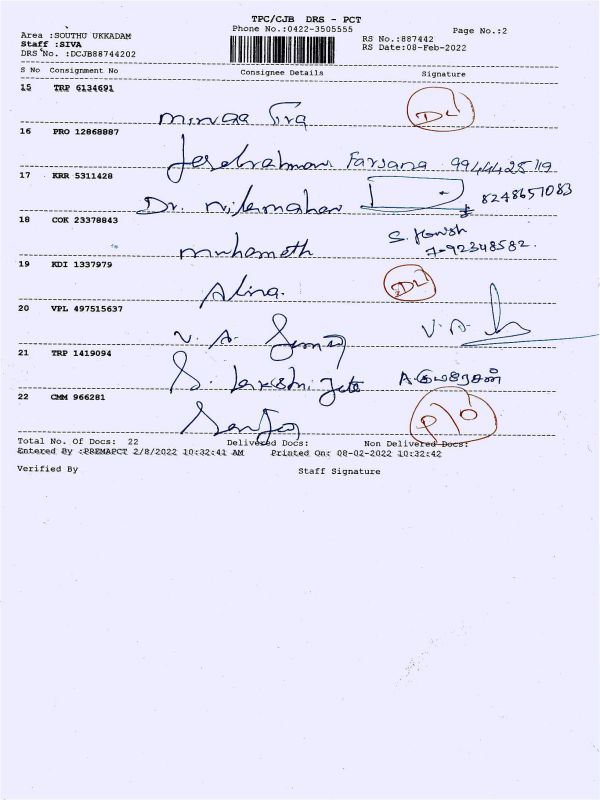 TPC/CJB DRS - PCT
Phone No.:0422-3505555
Page No.:2
Area :SOUTHU UKKADAM
Staff :SIVA
DRS No. :DCJB88744202
RS No.:887442
RS Date:08-Feb-2022
S No Consignment No Consignee Details Signature
15 TRP 6134691
DL
16 PRO 12868887
Farsana 9944425119
17 KRR 5311428
Dr.
8248657083
18 COK 23378843
muhameth
7-92348582.
19 KDI 1337979
Alina. DL
20 VPL 497515637
V. A. V. A.
21 TRP 1419094
S.
22 CMM 966281
Total No. Of Docs: 22 Delivered Docs: Non Delivered Docs:
Entered By :PREMAPCT 2/8/2022 10:32:41 AM Printed On: 08-02-2022 10:32:42
Verified By Staff Signature